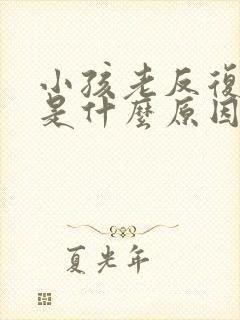 小孩老反復
是什麼原因
夏光年